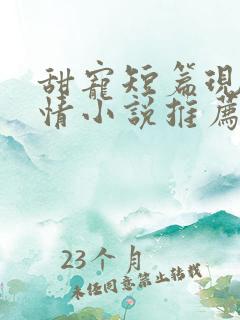 甜寵短篇現
情小說推薦
23个月
未经同意禁止转载